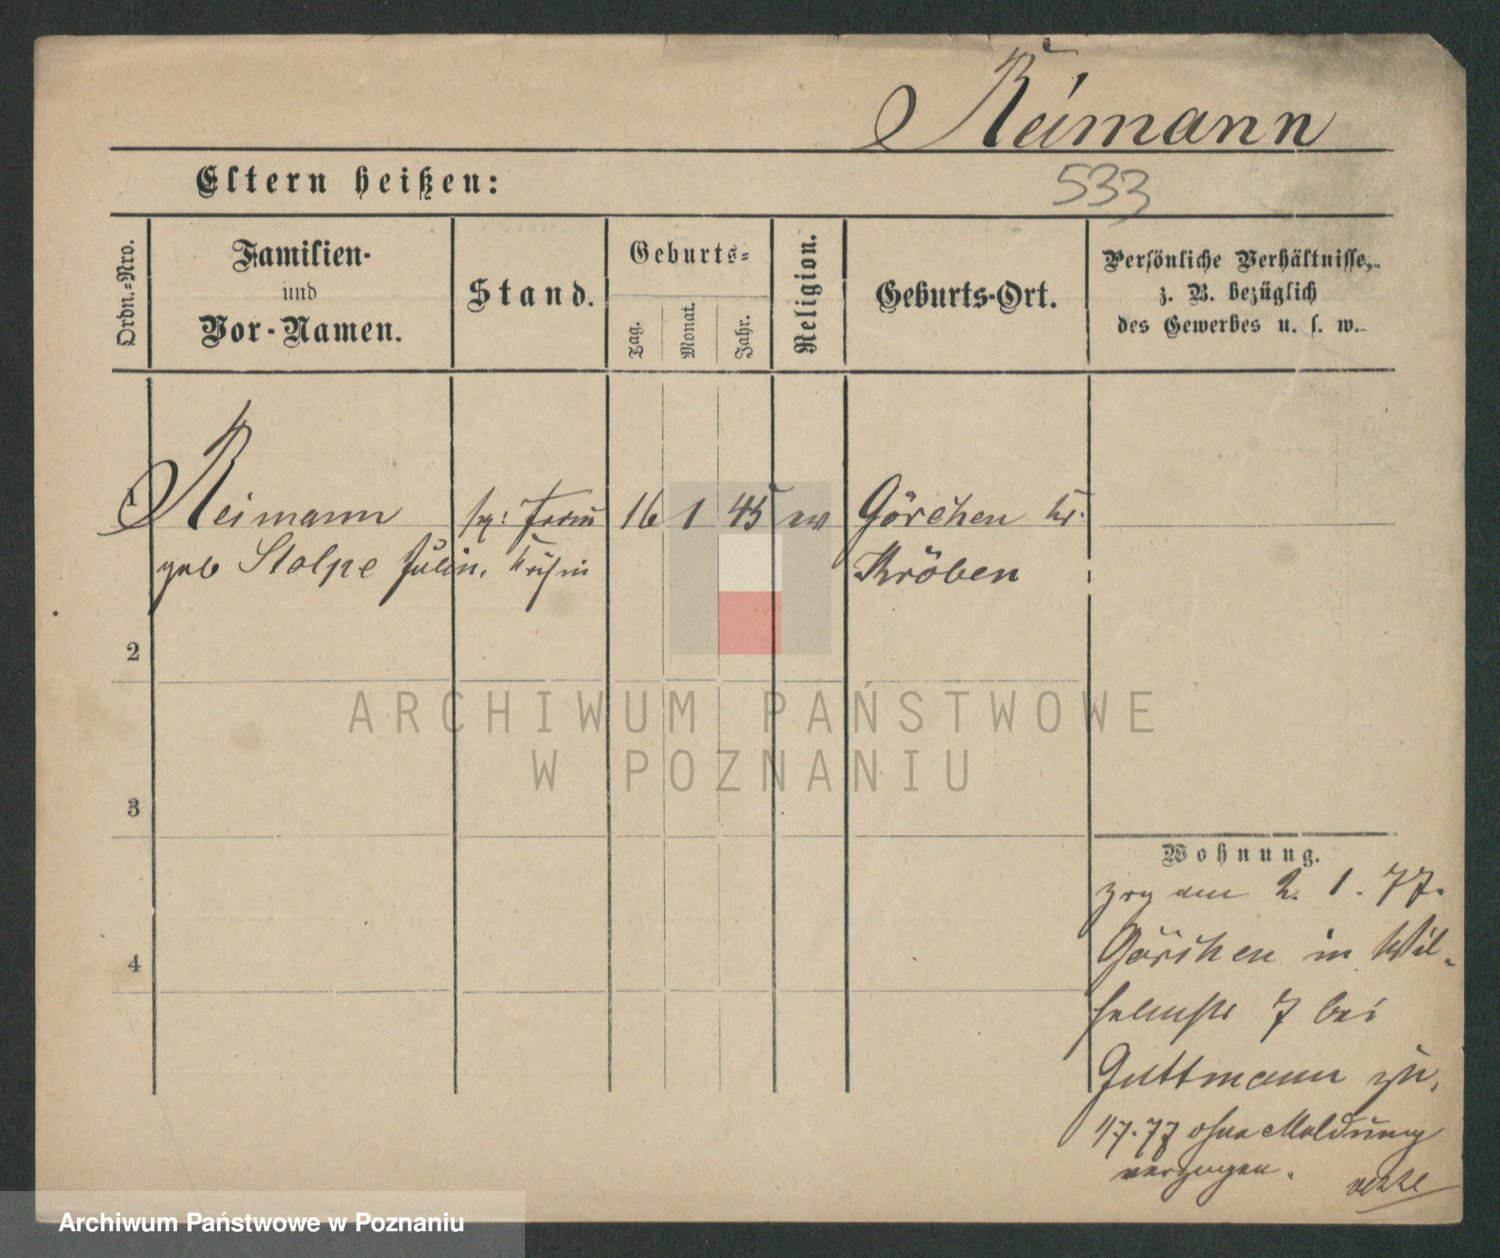 Reimann
533
Eltern heißen:
Ordn.-Nro.
Familien-
und
Vor-Namen.
Stand.
Geburts-
Tag.
Monat.
Jahr.
Religion.
Geburts-Ort.
Persönliche Verhältnisse,
z. B. bezüglich
des Gewerbes u. s. w.
1 Reimann 16 1 45 ev Görchen Kr.
geb Stolpe Kröben
2
ARCHIWUM PAŃSTWOWE
W POZNANIU
3
Wohnung.
zog am 2. 1. 77.
4 Görchen in Wil-
helmstr 7 bei
Guttmann zu.
77 ohne Meldung
verzogen.
Archiwum Państwowe w Poznaniu